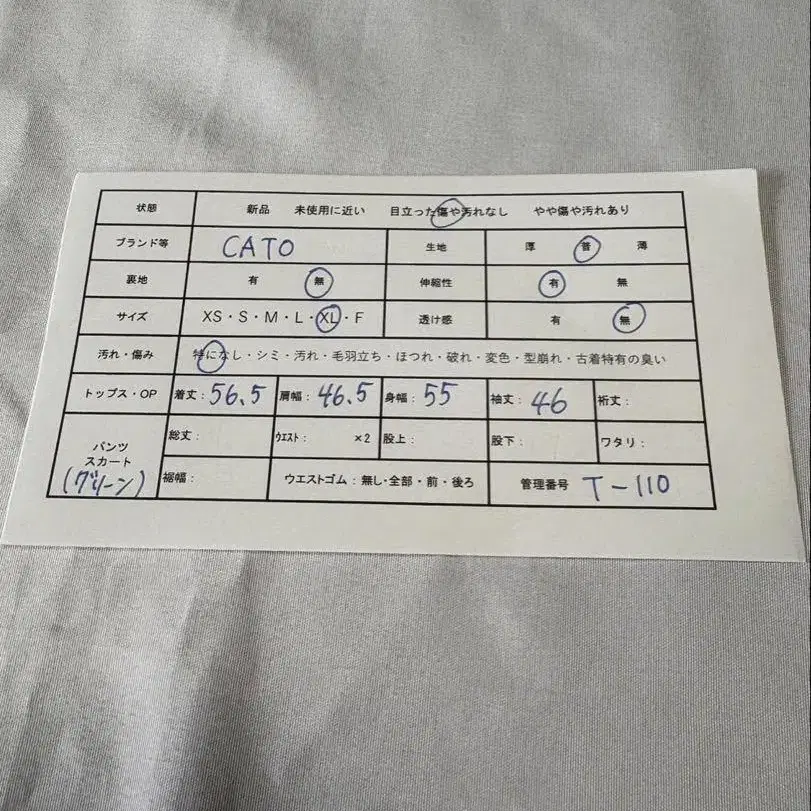 状態 新品 未使用に近い 目立った傷や汚れなし やや傷や汚れあり
ブランド等 CATO 生地 厚 普 薄
裏地 有 無 伸縮性 有 無
サイズ XS・S・M・L・XL・F 透け感 有 無
汚れ・傷み 特になし・シミ・汚れ・毛羽立ち・ほつれ・破れ・変色・型崩れ・古着特有の臭い
トップス・OP 着丈：56.5 肩幅：46.5 身幅：55 袖丈：46 裄丈：
パンツ
スカート
(グリーン)
総丈： ウエスト： ×2 股上： 股下： ワタリ：
裾幅： ウエストゴム：無し・全部・前・後ろ 管理番号 T-110